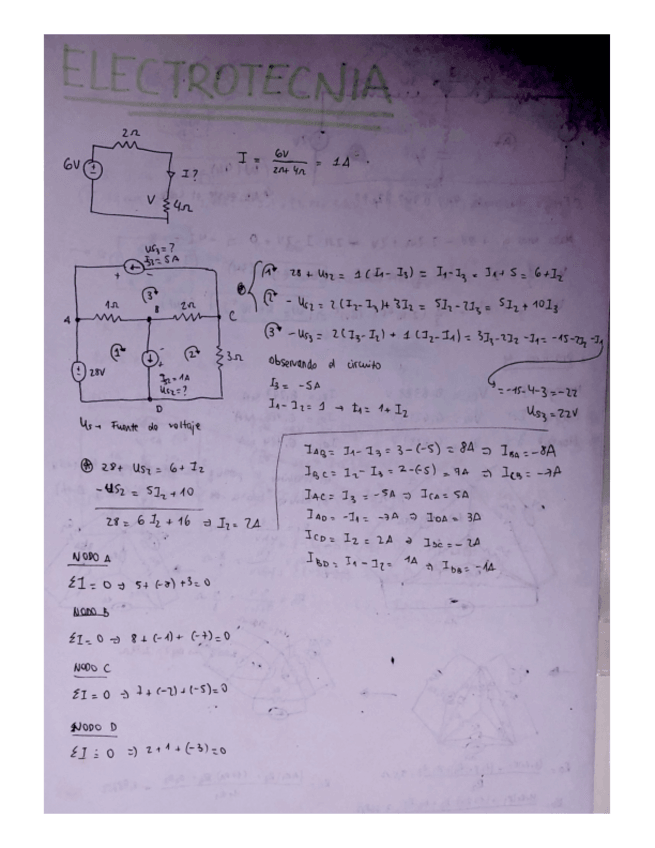 ELECTROTECNIA
2Ω
6V
I?
V
4Ω
I = 6V / 2Ω + 4Ω = 1A
Us3 = ?
I2 = 5A
1Ω
3
B
2Ω
A
C
1
2
28V
3Ω
I2 = 1A
Us2 = ?
D
Us → Fuente de voltaje
1 28 + Us2 = 1(I1 - I3) = I1 - I3 = I1 + 5 = 6 + I2
2 - Us2 = 2(I2 - I3) + 3I2 = 5I2 - 2I3 = 5I2 + 10
3 - Us3 = 2(I3 - I2) + 1(I3 - I1) = 3I3 - 2I2 - I1 = -15 - 2I2 - I1
= -15 - 4 - 3 = -22
Us3 = 22V
Observando el circuito
I3 = -5A
I1 - I2 = 1 → I1 = 1 + I2
28 + Us2 = 6 + I2
- Us2 = 5I2 + 10
28 = 6I2 + 16 ⇒ I2 = 2A
IAB = I1 - I3 = 3 - (-5) = 8A ⇒ IBA = -8A
IBC = I2 - I3 = 2 - (-5) = 7A ⇒ ICB = -7A
IAC = I3 = -5A ⇒ ICA = 5A
IAD = -I1 = -3A ⇒ IDA = 3A
ICD = I2 = 2A ⇒ IDC = - 2A
IBD = I1 - I2 = 1A ⇒ IDB = -1A
NODO A
ΣI = 0 ⇒ 5 + (-8) + 3 = 0
NODO B
ΣI = 0 ⇒ 8 + (-1) + (-7) = 0
NODO C
ΣI = 0 ⇒ 7 + (-2) + (-5) = 0
NODO D
ΣI = 0 ⇒ 2 + 1 + (-3) = 0